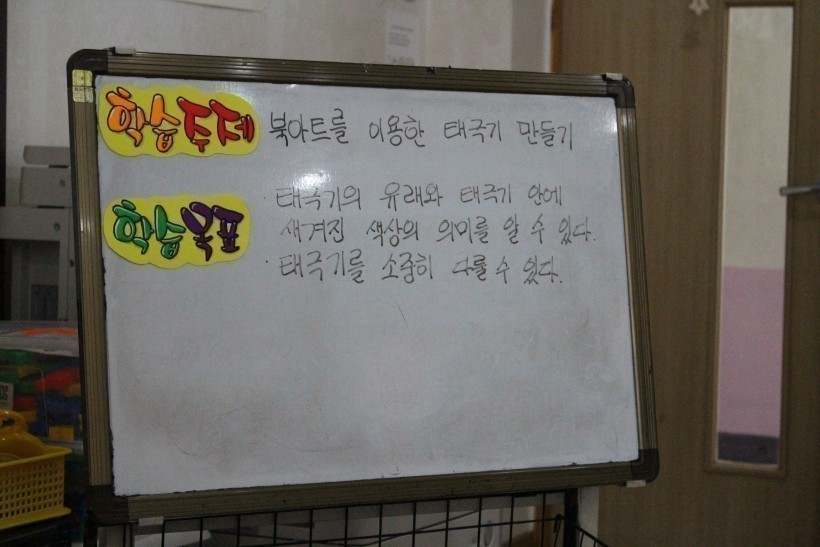 학습주제 북아트를 이용한 태극기 만들기
학습목표 · 태극기의 유래와 태극기 안에
새겨진 색상의 의미를 알 수 있다.
· 태극기를 소중히 다룰 수 있다.